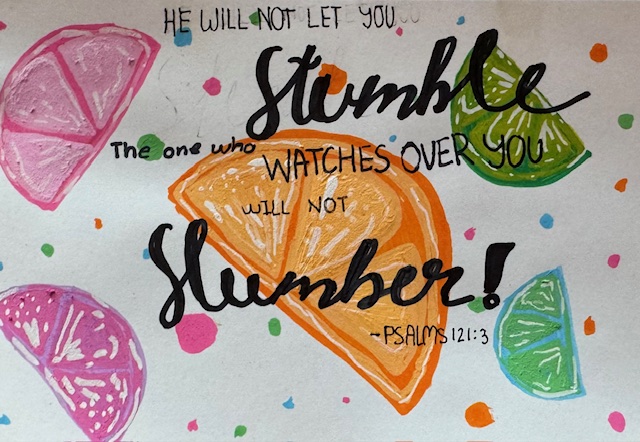 HE WILL NOT LET YOU
Stumble
The one who WATCHES OVER YOU
WILL NOT
Slumber!
~PSALMS 121:3